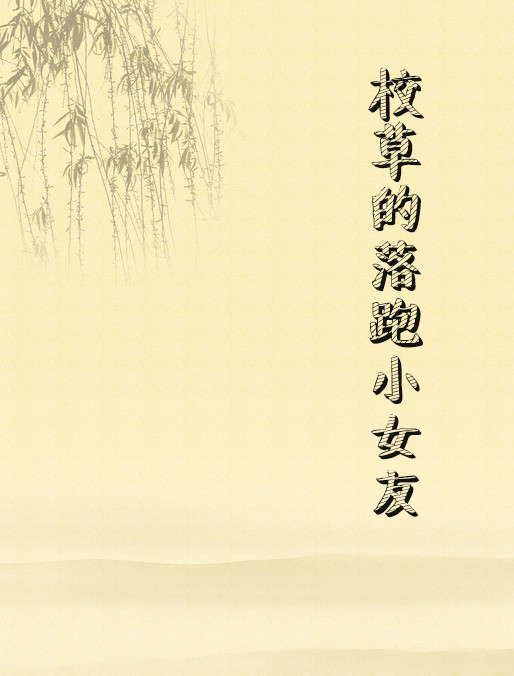 校草的落跑小女友